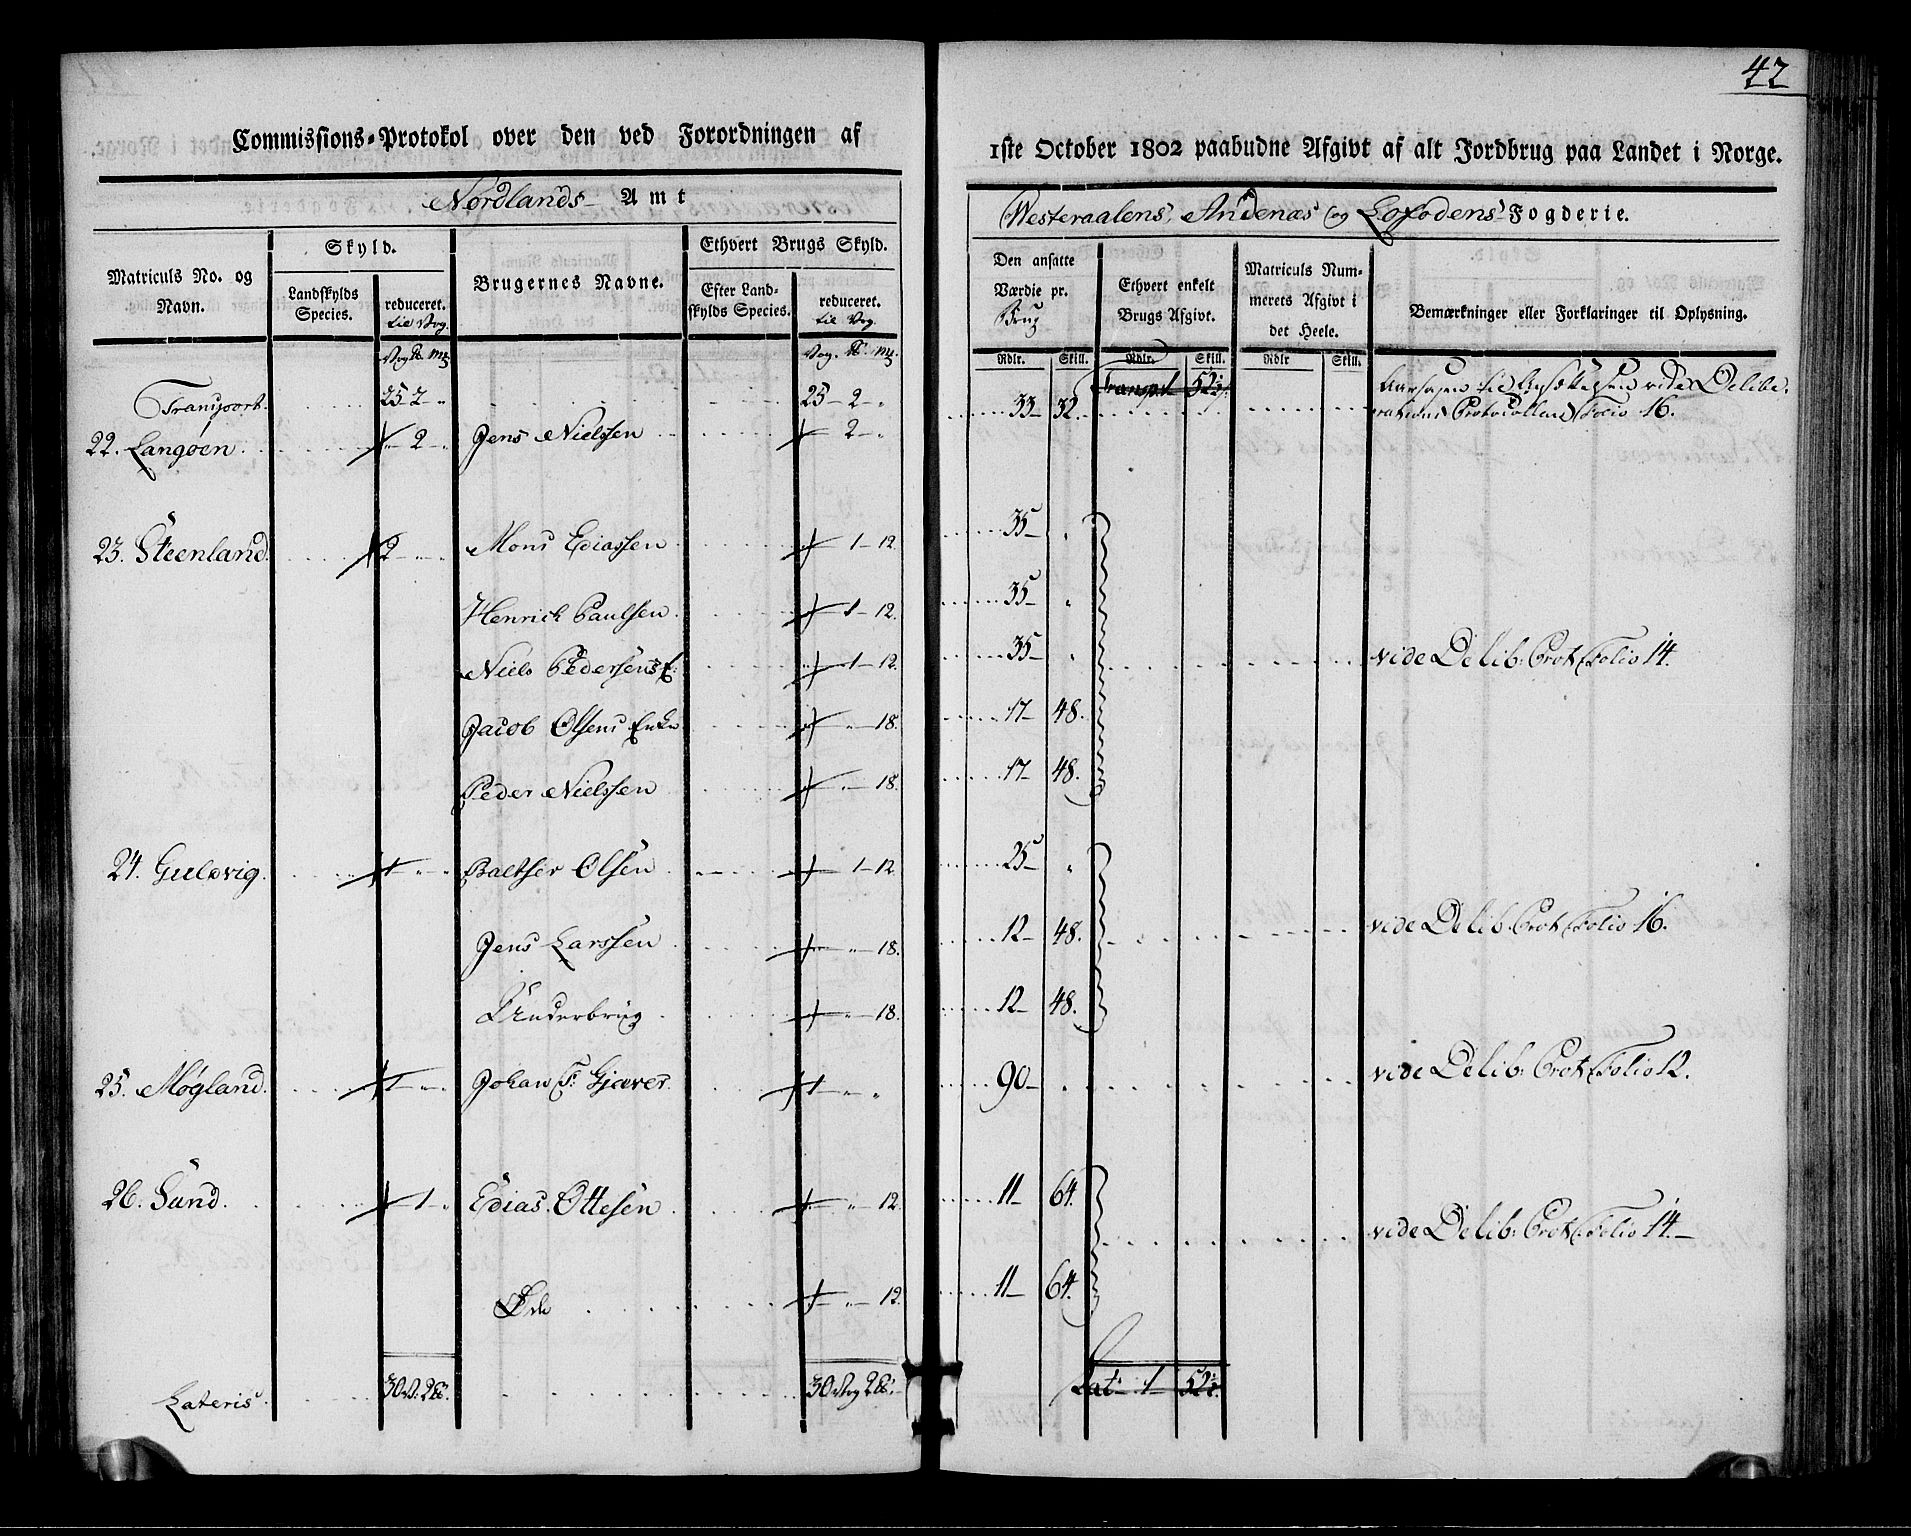 42
Commissions-Protokol over den ved Forordningen af
1ste October 1802 paabudne Afgivt af alt Jordbrug paa Landet i Norge.
Nordlands Amt
Westeraalens, Andenæs og Lofodens Fogderie.
Matriculs No. og Navn.
Skyld.
Landskylds Species.
reduceret. til Vog.
Brugernes Navne.
Ethvert Brugs Skyld.
Efter Landskylds Species.
reduceret. til Vog.
Den ansatte Værdie pr. Brug
Ethvert enkelt Brugs Afgivt.
Matriculs Nummerets Afgivt i det Heele.
Bemærkninger eller Forklaringer til Oplysning.
Rdlr. Skill. Rdlr. Skill. Rdlr Skill.
Transport. 25 2 " 25 - 2 - " Transpt 52½
22. Langøen. " 2 - " Jens Nielssen 2 - " 33 - 32. Aarsagen til Ansættelsen vide Delibe-
rations Protocollen Folio 16.
23. Steenland. 2 - " - " Mons Ediassen 1 - 12. 35 - "
Henrich Paulsen 1 - 12. 35 - "
Niels Pedersens E: 1 - 12. 35 - " vide Delib: Prot: Folio 14.
Jacob Olsens Enke " - 18. 17 - 48.
Peder Nielssen " - 18. 17 - 48.
24. Gulevig. 1 " - " Baltser Olsen 1 - 12. 25 - "
Jens Larssen " - 18. 12 - 48. vide Delib. Prot Folio 16.
Underbrug " - 18. 12 - 48.
25. Møgland. 1 - " - " Johan F: Gjæver. 1 - " - " 90 - " vide Delib: Prot Folio 12.
26. Sund. 1 - " Edias Ottesen " - 12. 11 - 64.
vide Delib: Prot: Folio 14. -
Øde " - 12. 11 - 64.
Lateris 30 V. 2 30 Vog 2 Lat: 1 - 52½.